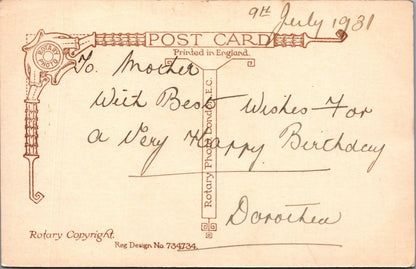 9th July 1931
POST CARD
Printed in England.
To. Mother
With Best Wishes For
a Very Happy Birthday
Dorothea
Rotary Photo, London, E.C.
Rotary Copyright.
Reg Design. No. 734734.